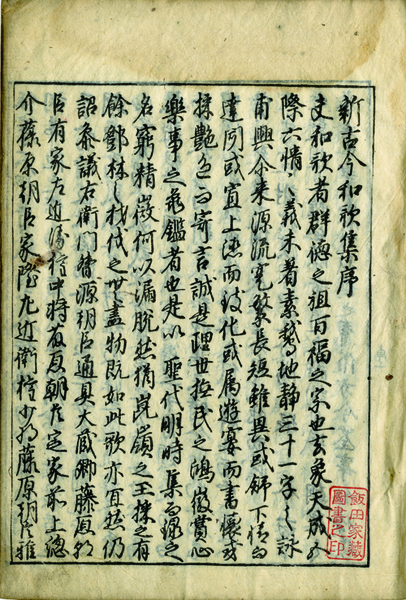 新古今和歌集序
夫和歌者群徳之祖百福之宗也玄象天成五
際六情之義未着素鵞地静三十一字之詠
甫興尒来源流寔繁長短雖異或飾下情而
達聞或宣上徳而致化或属遊宴而書懐或
採艶色而寄言誠是理世撫民之鴻徽賞心
樂事之亀鑑者也是以 聖代明時集而録之
各窮精微何以漏脱然猶崑嶺之玉採之有
餘鄧林之材伐之無盡物既如此歌亦宜然仍
詔参議右衛門督源朝臣通具大蔵卿藤原朝
臣有家左近衛権中将藤原朝臣定家前上總
介藤原朝臣家隆左近衛権少将藤原朝臣雅
飯田家藏
圖書之印